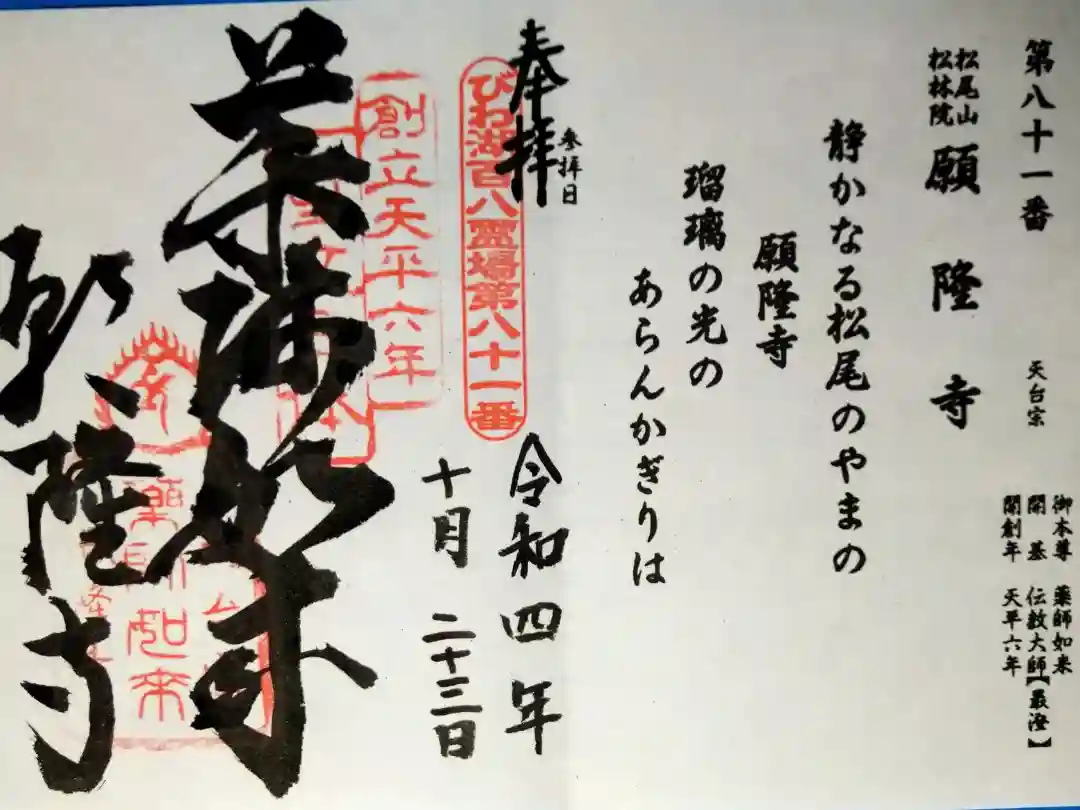 第八十一番
天台宗
御本尊 薬師如来
開基 伝教大師【最澄】
開創年 天平六年
松尾山
松林院
願隆寺
静かなる松尾のやまの
願隆寺
瑠璃の光の
あらんかぎりは
奉拝
参拝日
令和四年
十月 二十三日
びわ湖百八霊場第八十一番
創立天平六年
薬師如来
願隆寺
薬師如来